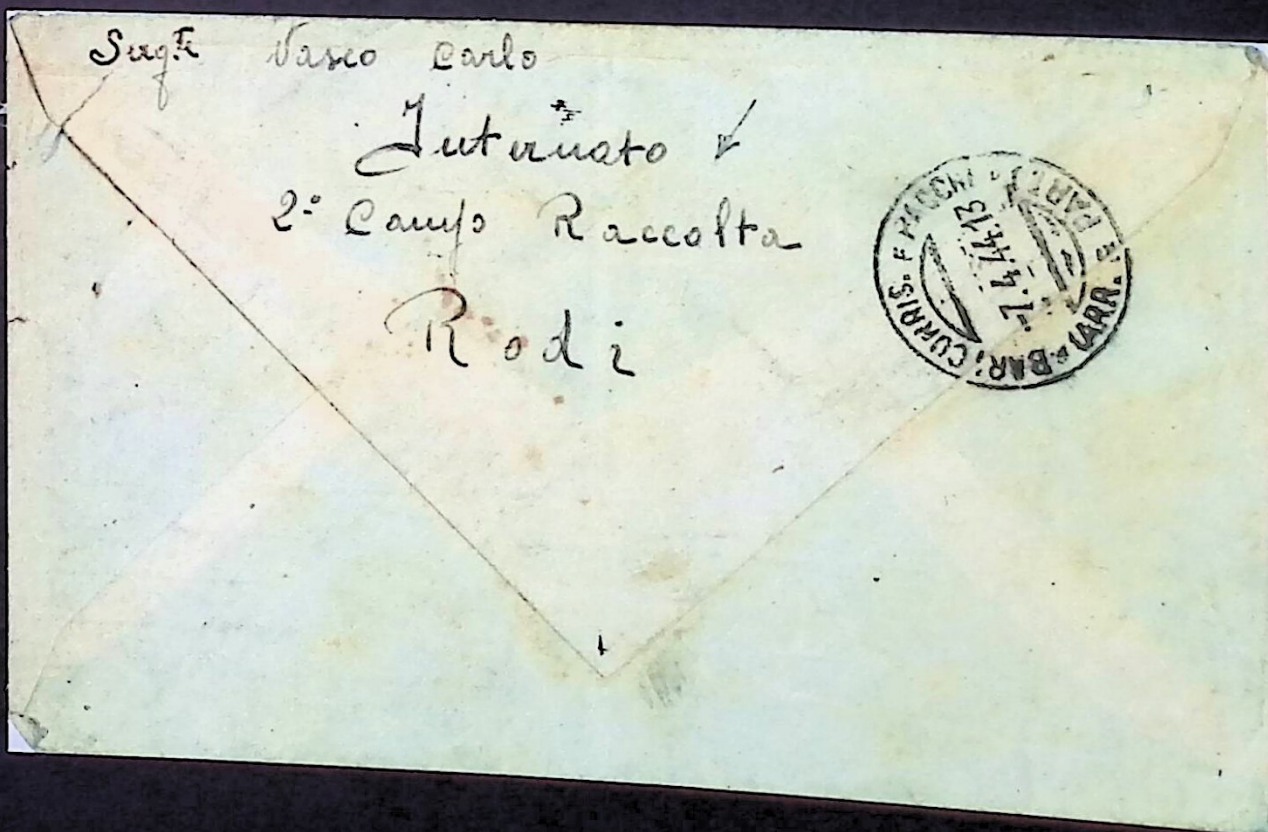 Serg.te Vasco Carlo
Internato
2° Campo Raccolta
Rodi
BARI CORRISP. E PACCHI
(ARR. E PART.)
-7.4.44.13